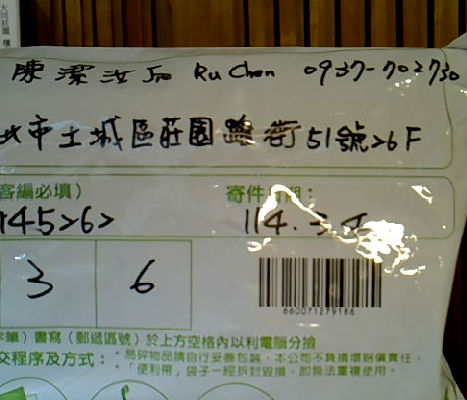 陳潔汝 Jo Ru Chen 0937-702730
北市土城區莊園街51號26F
客編必填）
寄件日期：
1145262
114.3.4
3 6
660071279186
筆）書寫（郵遞區號）於上方空格內以利電腦分撿
交程序及方式：
•易碎物品請自行妥善包裝，本公司不負損壞賠償責任。
•「便利帶」袋子一經拆封毀損，即無法重複使用。